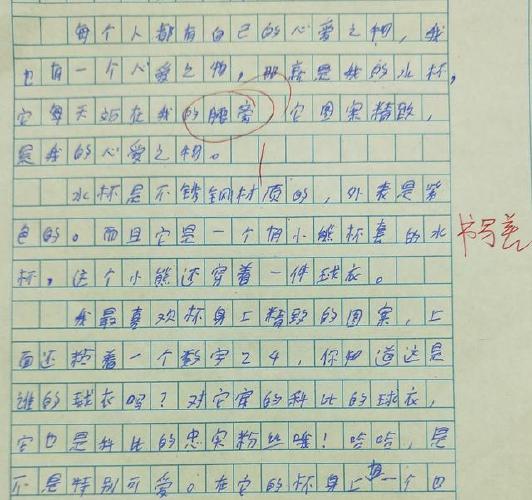 每个人都有自己的心爱之物，我
也有一个心爱之物，那就是我的水杯，
它每天站在我的腰旁，它图案精致，
是我的心爱之物。
水杯是不锈钢材质的，外表是紫
色的。而且它是一个有小熊杯套的水
杯，这个小熊还穿着一件球衣。
我最喜欢杯身上精致的图案，上
面还标着一个数字24，你知道这是
谁的球衣吗？对它穿的科比的球衣，
它也是科比的忠实粉丝哦！哈哈，是
不是特别可爱。在它的杯身上有一个口
书写差